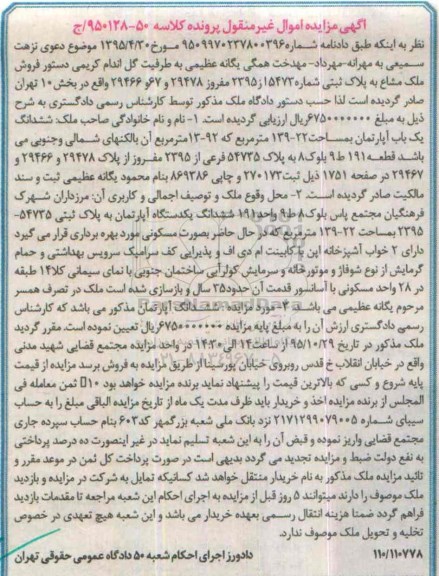 آگهی مزایده اموال غیرمنقول پرونده کلاسه ۵۰-۹۵۰۱۲۸/ج
نظر به اینکه طبق دادنامه شماره ۹۵۰۹۹۷۰۲۳۷۸۰۰۳۹۶ مورخ ۱۳۹۵/۴/۳۰ موضوع دعوی نزهت
سمیعی به مهرانه-مهرداد-مهدخت همگی یگانه عظیمی به طرفیت گل اندام کریمی دستور فروش
ملک مشاع به پلاک ثبتی شماره ۱۵۴۷۳ از ۲۳۹۵ مفروز ۲۹۴۷۸ و ۶۷ و ۲۹۴۶۶ واقع در بخش ۱۰ تهران
صادر گردیده است لذا حسب دستور دادگاه ملک مذکور توسط کارشناس رسمی دادگستری به شرح
ذیل به مبلغ ۶۷۵۰۰۰۰۰۰۰ ریال ارزیابی گردیده است. ۱- نام و نام خانوادگی صاحب ملک: ششدانگ
یک باب آپارتمان بمساحت ۲۲-۱۳۹ مترمربع که ۹۲-۱۳ مترمربع آن بالکنهای شمالی وجنوبی می
باشد قطعه ۱۹۱ ط ۹ بلوک ۸ به پلاک ۵۴۷۳۵ فرعی از ۲۳۹۵ مفروز از پلاک ۲۹۴۷۸ و ۲۹۴۶۶ و
۲۹۴۶۷ در صفحه ۱۷۵۱ ذیل ثبت ۲۷۰۱۷۳ و چاپی ۸۶۹۳۸۶ بنام محمود یگانه عظیمی ثبت و سند
مالکیت صادر گردیده است. ۲- محل وقوع ملک و توصیف اجمالی و کاربری آن: مرزداران شهرک
فرهنگیان مجتمع پاس بلوک ۸ ط ۹ واحد ۱۹۱ ششدانگ یکدستگاه آپارتمان به پلاک ثبتی ۵۴۷۳۵-
۲۳۹۵ بمساحت ۲۲-۱۳۹ مترمربع که در حال حاضر بصورت مسکونی مورد بهره برداری قرار می گیرد
دارای ۲ خواب آشپزخانه اپن با کابینت ام دی اف و پذیرایی کف سرامیک سرویس بهداشتی و حمام
گرمایش از نوع شوفاژ و موتورخانه و سرمایش کولرآبی ساختمان جنوبی با نمای سیمانی کلا ۱۴ طبقه
در ۲۸ واحد مسکونی با آسانسور قدمت آن حدود ۳۵ سال و بازسازی شده است ملک در تصرف همسر
مرحوم یگانه عظیمی می باشد. ۳- مورد مزایده: ششدانگ آپارتمان مذکور می باشد که کارشناس
رسمی دادگستری ارزش آن را به مبلغ پایه مزایده ۶۷۵۰۰۰۰۰۰۰ ریال تعیین نموده است. مقرر گردید
ملک مذکور در تاریخ ۹۵/۱۰/۲۹ از ساعت ۱۴ الی ۱۴:۳۰ در واحد مزایده مجتمع قضایی شهید مدنی
واقع در خیابان انقلاب خ قدس روبروی خیابان پورسینا از طریق مزایده به فروش برسد مزایده از قیمت
پایه شروع و کسی که بالاترین قیمت را پیشنهاد نماید برنده مزایده خواهد بود ۱۰٪ ثمن معامله فی
المجلس از برنده مزایده اخذ و خریدار باید ظرف مدت یک ماه از تاریخ مزایده الباقی مبلغ را به حساب
سیبای شماره ۲۱۷۱۲۹۹۰۷۹۰۰۵ نزد بانک ملی شعبه بزرگمهر کد ۶۰۳ بنام حساب سپرده جاری
مجتمع قضایی واریز نموده و قبض آن را به این شعبه تسلیم نماید در غیر اینصورت ده درصد پرداختی
به نفع دولت ضبط و مزایده تجدید می گردد بدیهی است در صورت پرداخت کل ثمن در موعد مقرر و
تائید مزایده ملک مذکور به نام خریدار منتقل خواهد شد کسانیکه تمایل به شرکت در مزایده و بازدید
ملک موصوف را دارند میتوانند ۵ روز قبل از مزایده به اجرای احکام این شعبه مراجعه تا مقدمات بازدید
فراهم گردد ضمنا هزینه انتقال رسمی بعهده خریدار می باشد و این شعبه هیچ تعهدی در خصوص
تخلیه و تحویل ملک موصوف ندارد.
۱۱۰/۱۱۰۷۷۸ دادورز اجرای احکام شعبه ۵۰ دادگاه عمومی حقوقی تهران